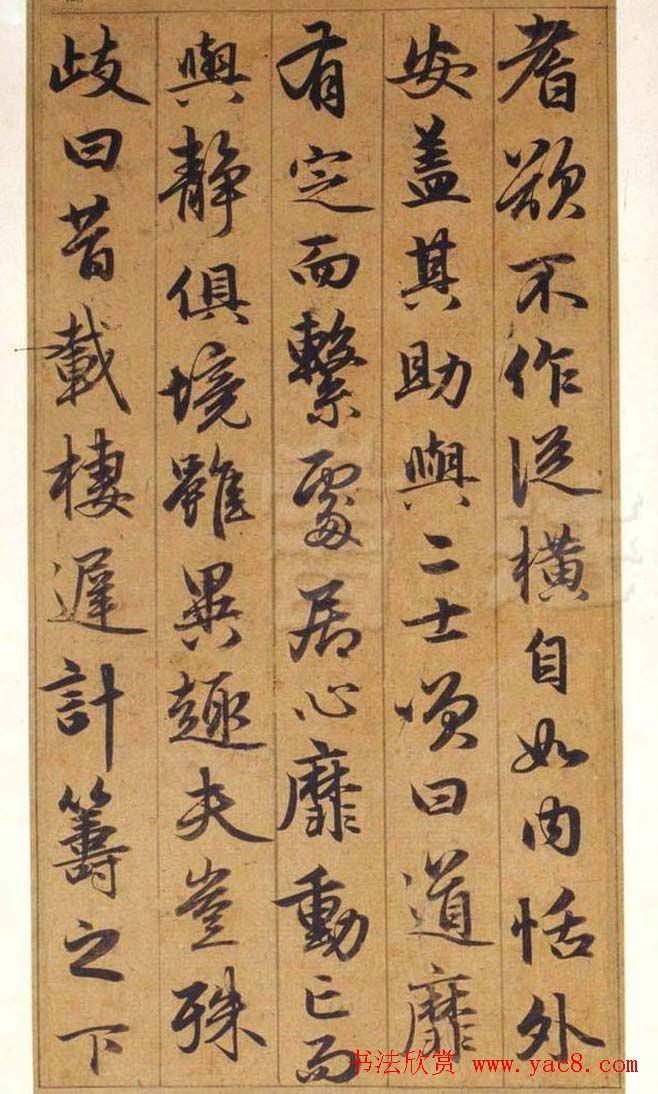 耆欲不作從橫自如内恬外
安蓋其助與二士頌曰道靡
有定而繫處居心靡動亡而
與静俱境雖異趣夫豈殊
歧曰昔載棲遲計籌之下
书法欣赏
www.yac8.com